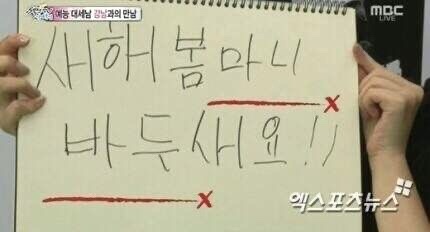 예능 대세남 강남과의 만남
MBC
LIVE
새해 봄마니
바두새요!!
엑스포츠뉴스